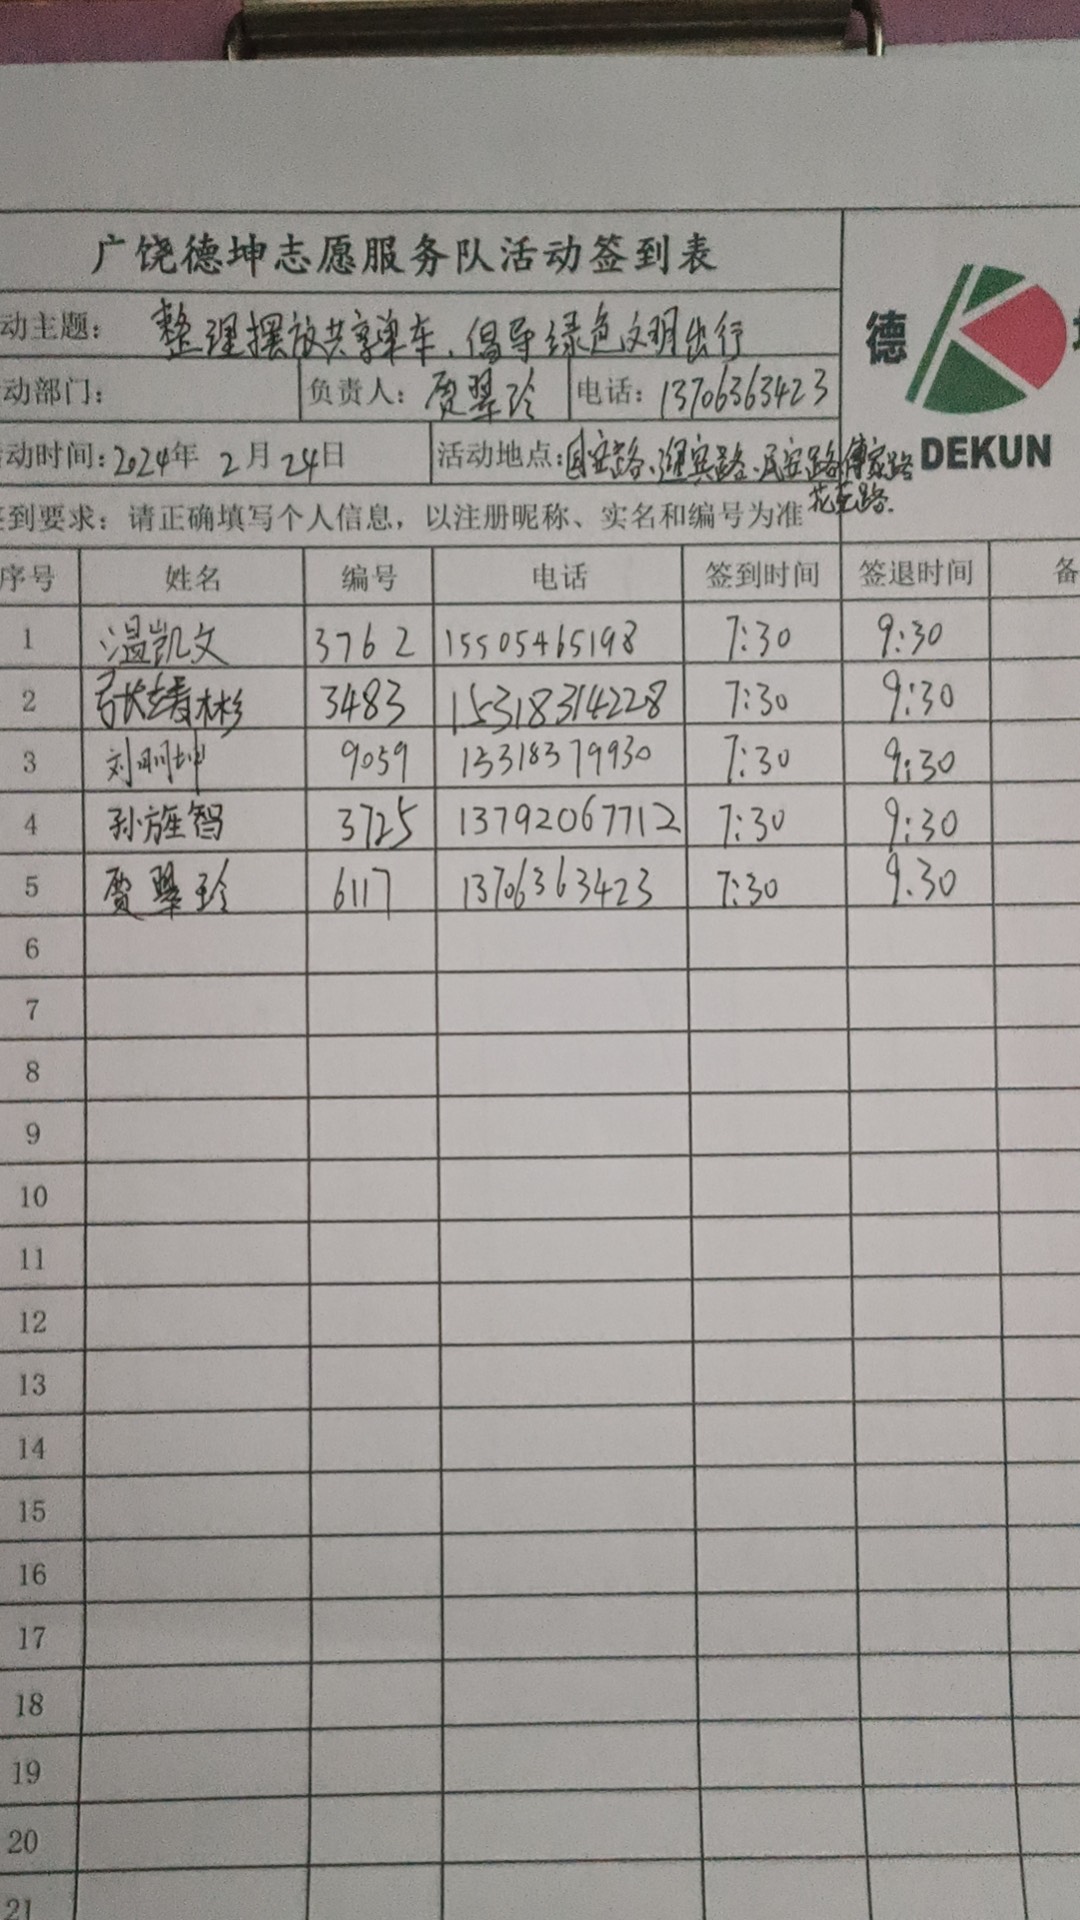 广饶德坤志愿服务队活动签到表
动主题: 整理摆放共享单车、倡导绿色文明出行
动部门: 负责人: 贾翠玲 电话: 13706363423
动时间: 2024年 2月 24日 活动地点: 国安路、迎宾路、民安路 傅家路
花苑路.
签到要求: 请正确填写个人信息, 以注册昵称、实名和编号为准
德
DEKUN
序号 姓名 编号 电话 签到时间 签退时间 备
1 温凯文 3762 15505465198 7:30 9:30
2 张彬 3483 15318314228 7:30 9:30
3 刘刚坤 9059 15318379930 7:30 9:30
4 孙旌智 3725 13792067712 7:30 9:30
5 贾翠玲 6117 13706363423 7:30 9.30
6
7
8
9
10
11
12
13
14
15
16
17
18
19
20
21